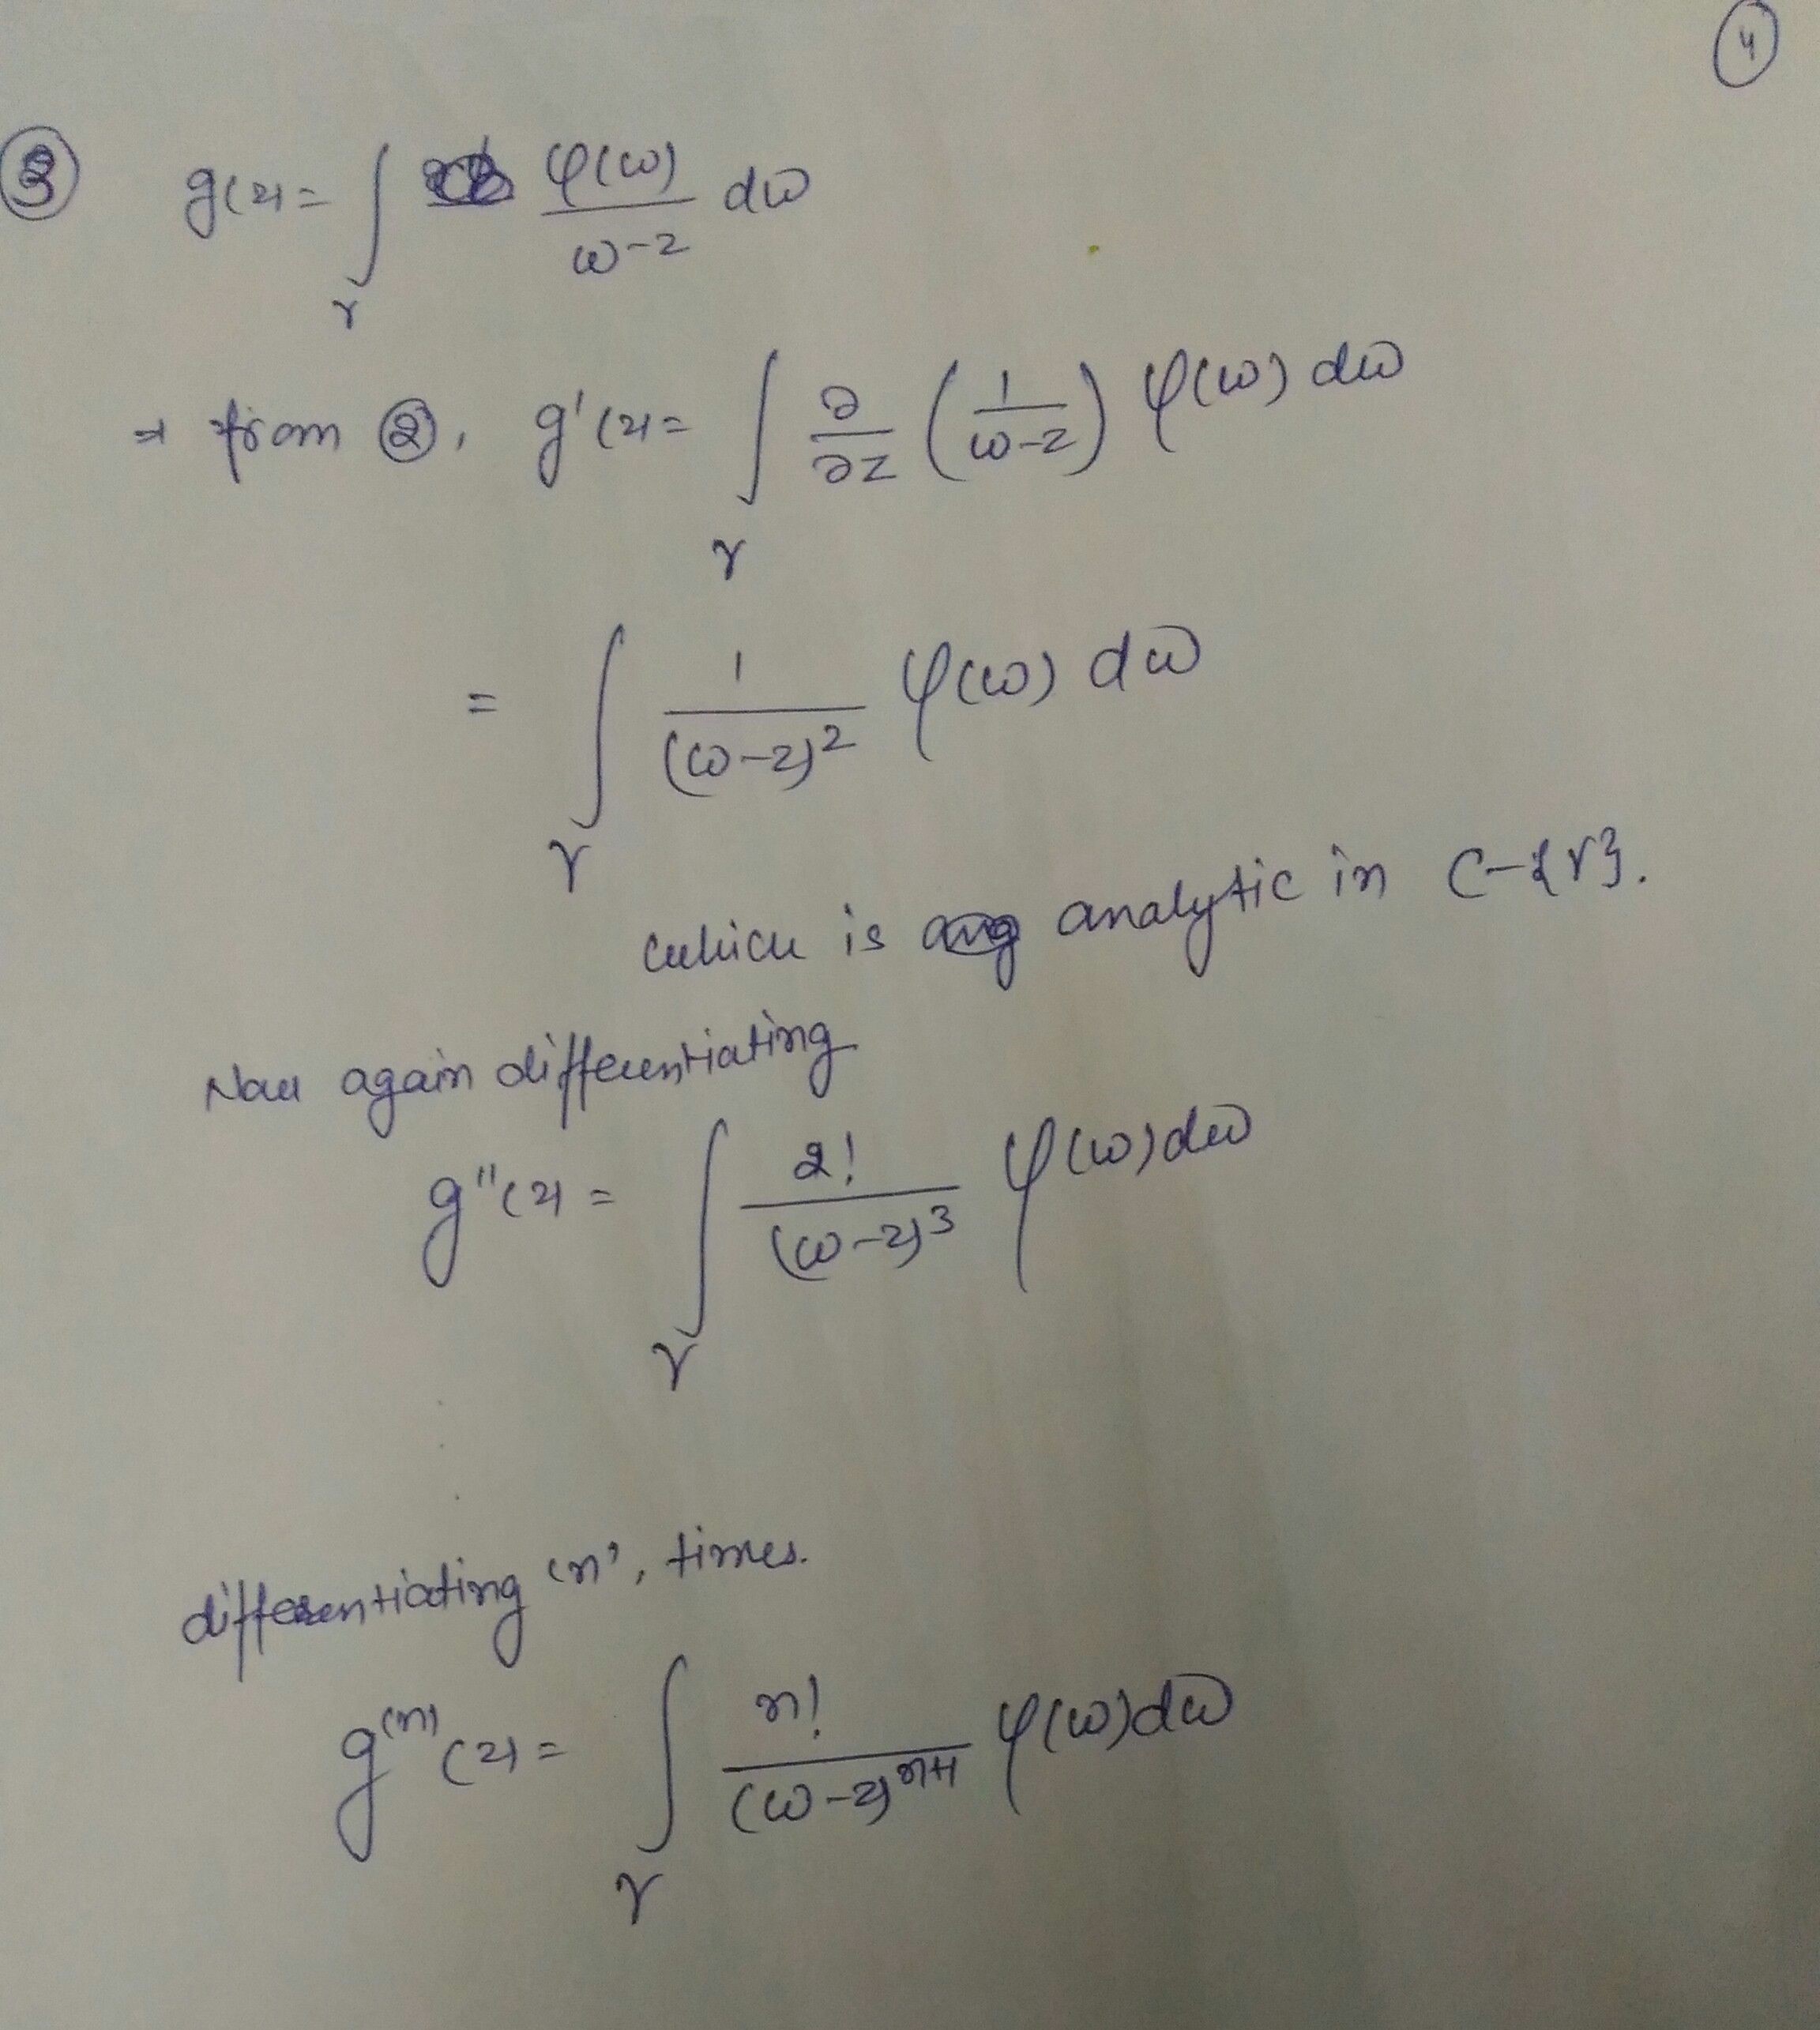 ④
③ g(z) = ∫_γ φ(w)/(w-z) dw
⇒ from ②, g'(z) = ∫_γ ∂/∂z (1/(w-z)) φ(w) dw
= ∫_γ 1/(w-z)² φ(w) dw
which is analytic in C-{γ}.
Now again differentiating
g''(z) = ∫_γ 2!/(w-z)³ φ(w) dw
differentiating 'n', times.
g⁽ⁿ⁾(z) = ∫_γ n!/(w-z)ⁿ⁺¹ φ(w) dw